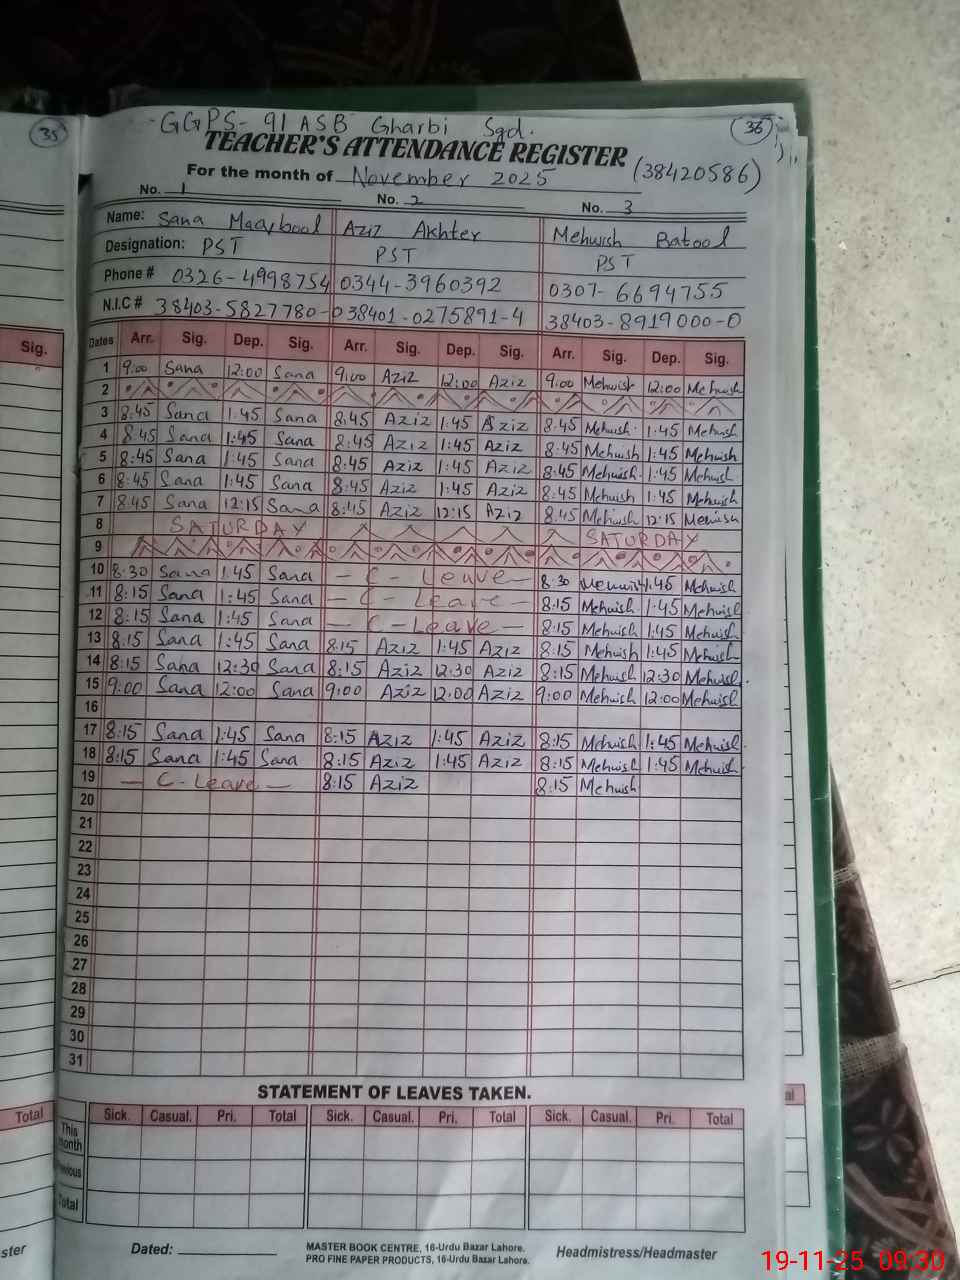 35
GGPS- 91 ASB Gharbi Sgd.
36
TEACHER'S ATTENDANCE REGISTER
(38420586)
For the month of November 2025
No. 1 No. 2 No. 3
Name: Sana Maqbool AZIZ Akhter Mehwish Batool
Designation: PST PST PST
Phone # 0326-4998754 0344-3960392 0307-6694755
N.I.C # 38403-5827780-0 38401-0275891-4 38403-8919000-0
Sig.
Dates Arr. Sig. Dep. Sig. Arr. Sig. Dep. Sig. Arr. Sig. Dep. Sig.
1 9:00 Sana 12:00 Sana 9:00 Aziz 12:00 Aziz 9:00 Mehwish 12:00 Mehwish
2
3 8:45 Sana 1:45 Sana 8:45 Aziz 1:45 Aziz 8:45 Mehwish 1:45 Mehwish
4 8:45 Sana 1:45 Sana 8:45 Aziz 1:45 Aziz 8:45 Mehwish 1:45 Mehwish
5 8:45 Sana 1:45 Sana 8:45 Aziz 1:45 Aziz 8:45 Mehwish 1:45 Mehwish
6 8:45 Sana 1:45 Sana 8:45 Aziz 1:45 Aziz 8:45 Mehwish 1:45 Mehwish
7 8:45 Sana 12:15 Sana 8:45 Aziz 12:15 Aziz 8:45 Mehwish 12:15 Mehwish
8 SATURDAY SATURDAY
9
10 8:30 Sana 1:45 Sana - C - Leave - 8:30 Mehwish 1:45 Mehwish
11 8:15 Sana 1:45 Sana - C - Leave - 8:15 Mehwish 1:45 Mehwish
12 8:15 Sana 1:45 Sana - C - Leave - 8:15 Mehwish 1:45 Mehwish
13 8:15 Sana 1:45 Sana 8:15 Aziz 1:45 Aziz 8:15 Mehwish 1:45 Mehwish
14 8:15 Sana 12:30 Sana 8:15 Aziz 12:30 Aziz 8:15 Mehwish 12:30 Mehwish
15 9:00 Sana 12:00 Sana 9:00 Aziz 12:00 Aziz 9:00 Mehwish 12:00 Mehwish
16
17 8:15 Sana 1:45 Sana 8:15 Aziz 1:45 Aziz 8:15 Mehwish 1:45 Mehwish
18 8:15 Sana 1:45 Sana 8:15 Aziz 1:45 Aziz 8:15 Mehwish 1:45 Mehwish
19 - C - Leave - 8:15 Aziz 8:15 Mehwish
20
21
22
23
24
25
26
27
28
29
30
31
STATEMENT OF LEAVES TAKEN.
Total
Sick. Casual. Pri. Total Sick. Casual. Pri. Total Sick. Casual. Pri. Total
This month
Total
Dated:
MASTER BOOK CENTRE, 16-Urdu Bazar Lahore.
PRO FINE PAPER PRODUCTS, 16-Urdu Bazar Lahore.
Headmistress/Headmaster
19-11-25 09:30